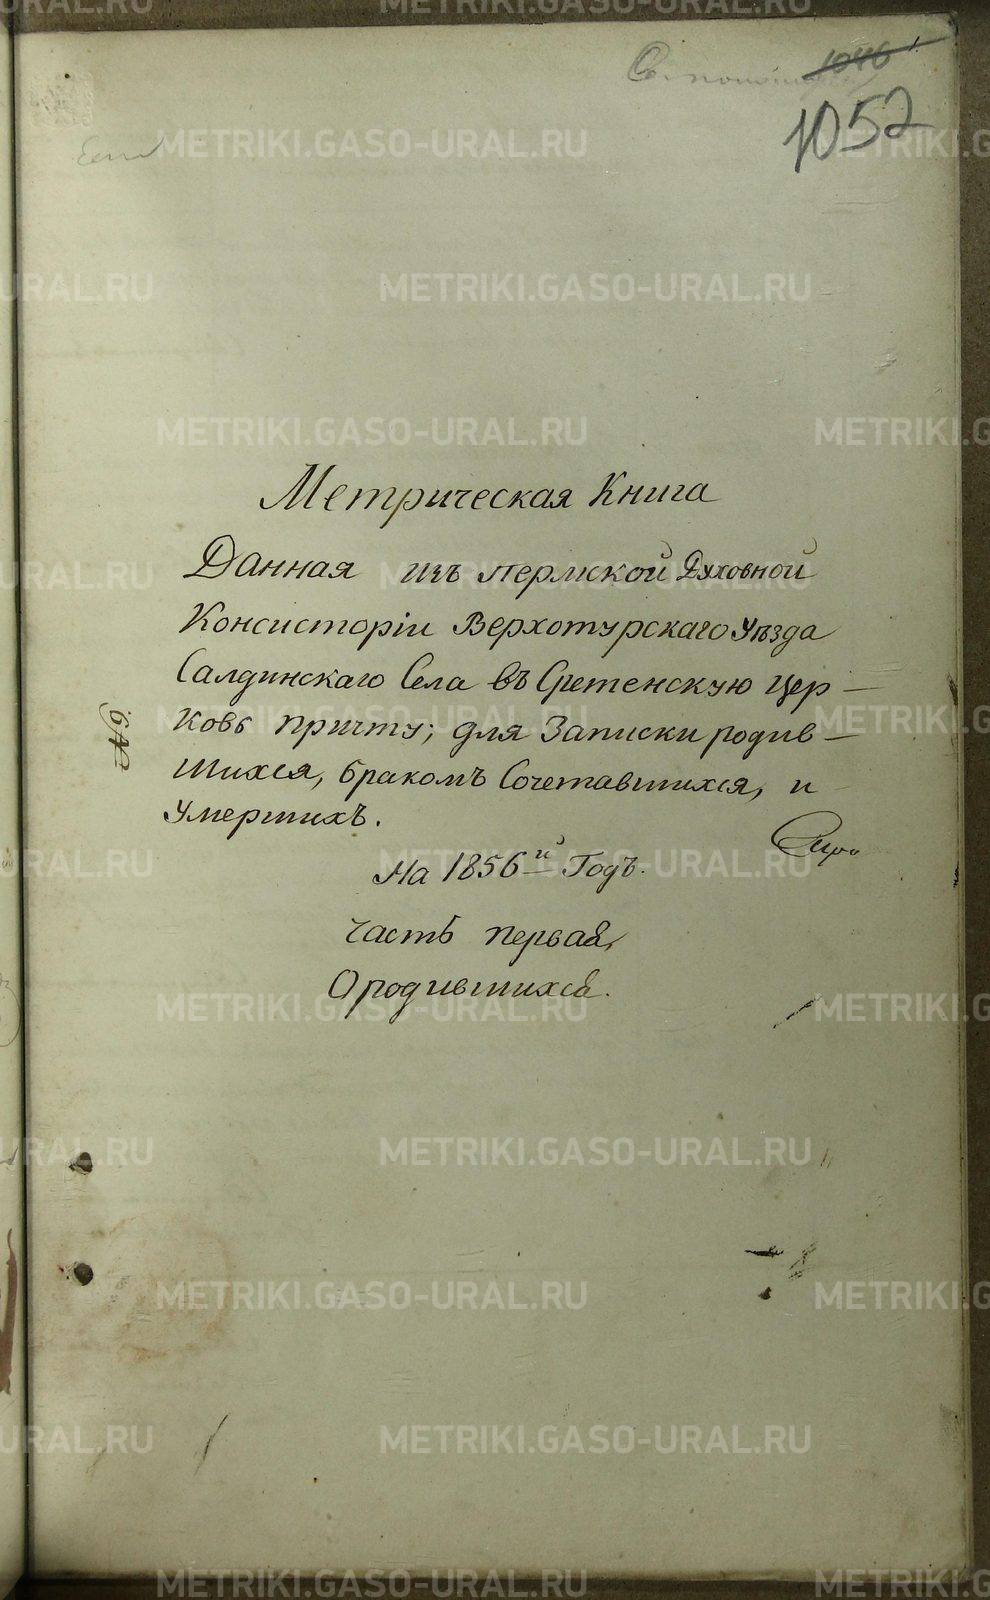 1046
1052
Метрическая Книга
Данная изъ Пермской Духовной
Консисторіи Верхотурскаго Уѣзда
Салдинскаго Села въ Сретенскую Цер-
ковь причту; для Записки родив-
шихся, бракомъ Сочетавшихся, и
Умершихъ.
На 1856й Годъ.
Часть первая,
О родившихся.
METRIKI.GASO-URAL.RU